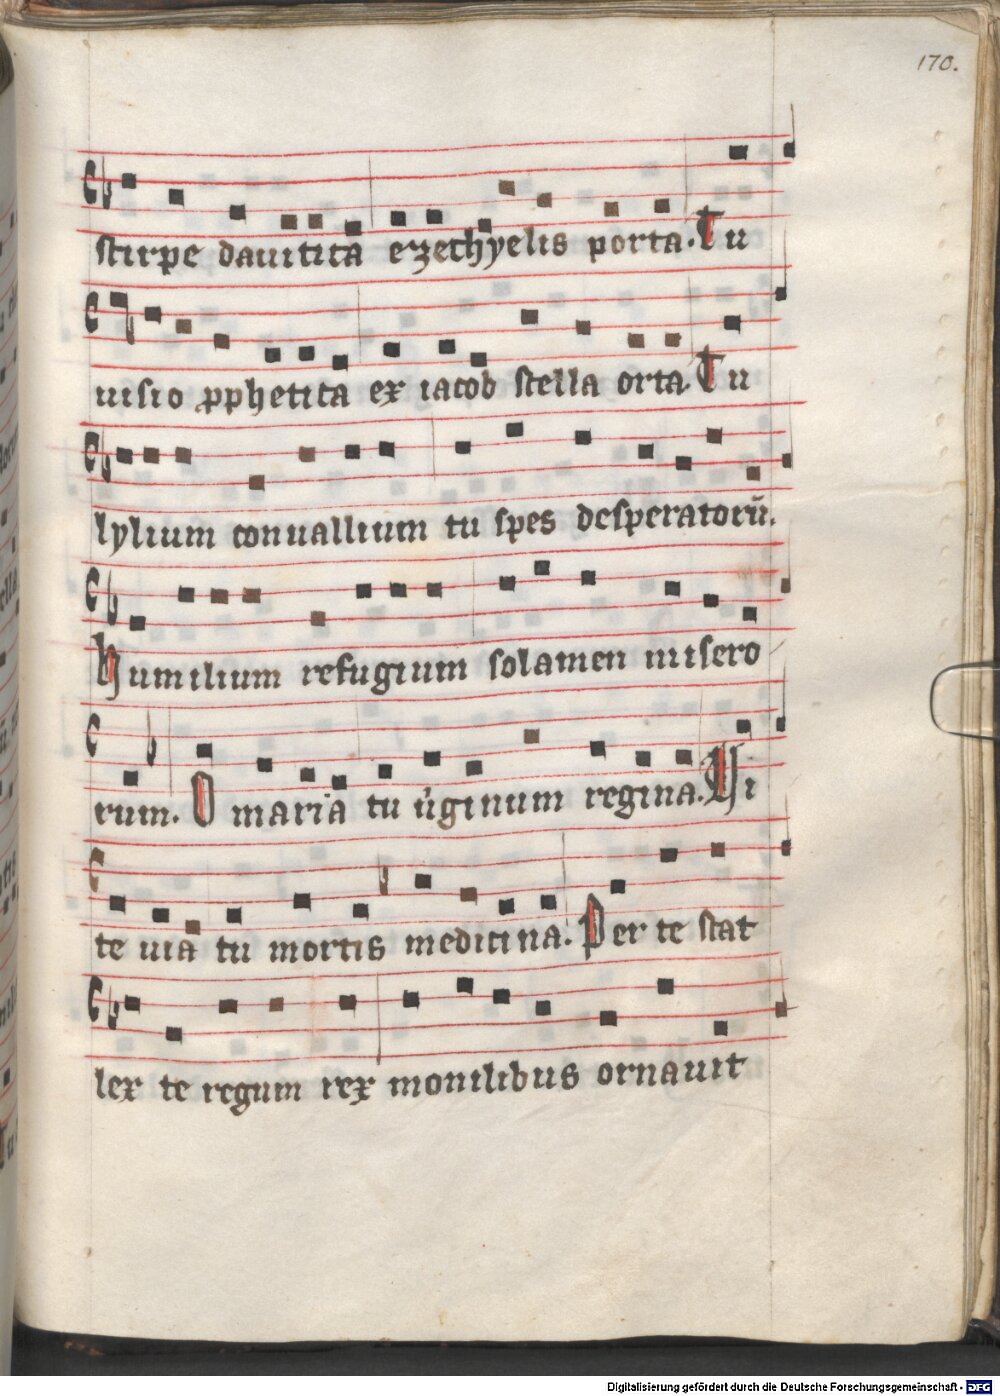 170.
stirpe dauitica ezechyelis porta. Tu
uisio pphetica ex iacob stella orta. Tu
lylium conuallium tu spes desperatorū.
Humilium refugium solamen misero
rum. O maria tu u̓ginum regina. Vi
te uia tu mortis medicina. Per te stat
lex te regum rex monilibus ornauit
Digitalisierung gefördert durch die Deutsche Forschungsgemeinschaft - DFG